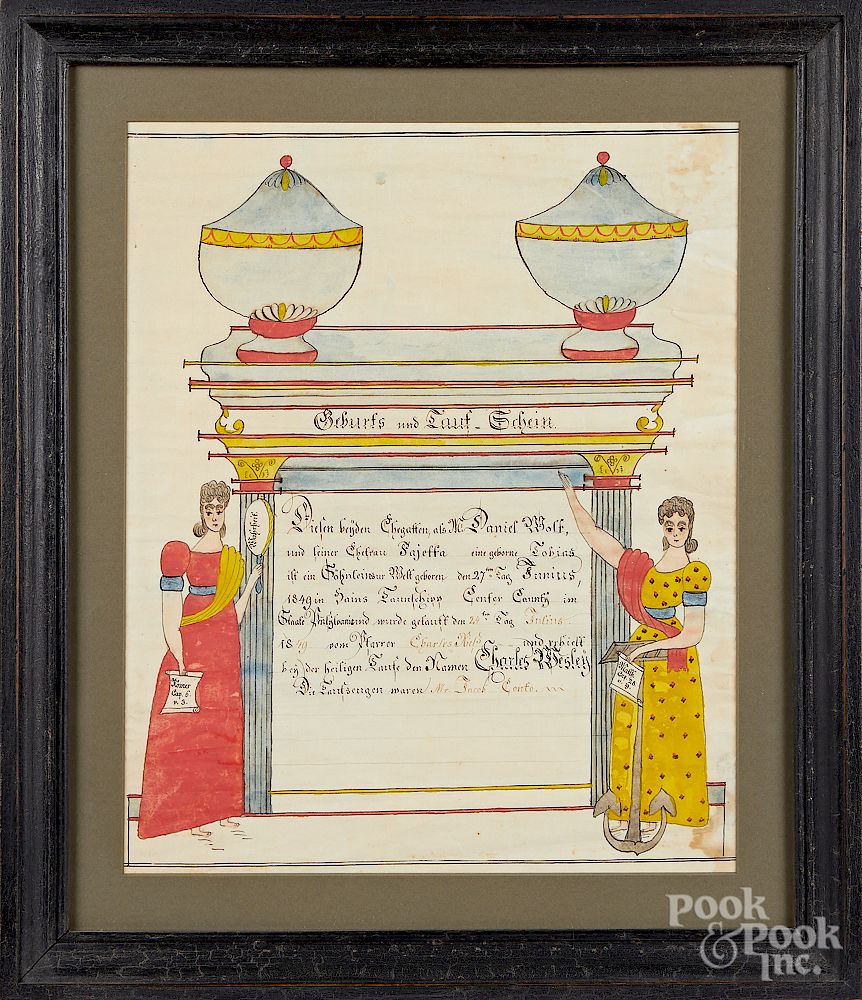 Geburts und Tauf-Schein.
Wahrheit
Diesen beyden Ehegatten, als Mr. Daniel Wolf,
und seiner Ehefrau eine geborne Tobias
ist ein Söhnlein zur Welt geboren den 27ten Tag Junius,
1849 in Hains Taunschipp Center Caunty im
Staate und wurde getauft den 24te Tag Julius
1849 vom Pfarrer Charles und erhielt
bey der heiligen Taufe den Namen Charles Wesley
Die Taufzeugen waren Mr. Jacob
Römer
Cap. 6.
v. 3.
Cap. 28
v. 19.
Pook
& Pook
Inc.